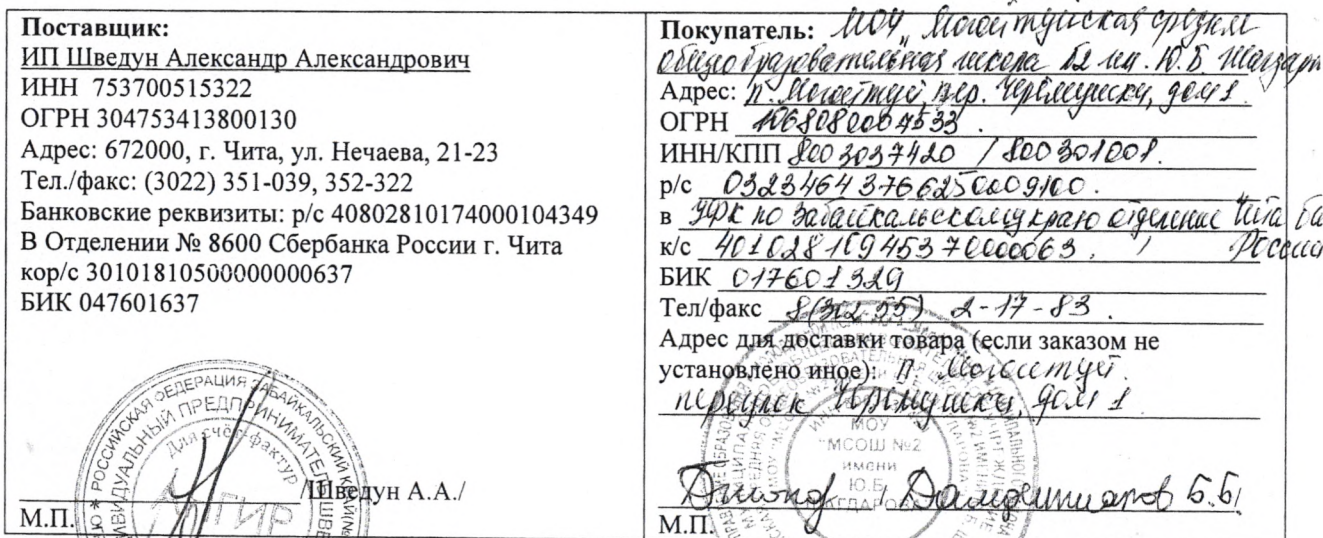 Поставщик:
ИП Шведун Александр Александрович
ИНН 753700515322
ОГРН 304753413800130
Адрес: 672000, г. Чита, ул. Нечаева, 21-23
Тел./факс: (3022) 351-039, 352-322
Банковские реквизиты: р/с 40802810174000104349
В Отделении № 8600 Сбербанка России г. Чита
кор/с 30101810500000000637
БИК 047601637
РОССИЙСКАЯ ФЕДЕРАЦИЯ ЗАБАЙКАЛЬСКИЙ КРАЙ
ИНДИВИДУАЛЬНЫЙ ПРЕДПРИНИМАТЕЛЬ
Для счёт-фактур
/Шведун А.А./
М.П.
Покупатель: МОУ "Могойтуйская средняя
общеобразовательная школа №2 им. Ю.Б.
Адрес: п. Могойтуй, пер. Черемушки, дом 1
ОГРН
ИНН/КПП 8003037420 / 800301001.
р/с 03234643766250009100.
в УФК по Забайкальскому краю отделение Чита
России
к/с 40102810945370000063.
БИК 017601329
Тел/факс 8(302-55) 2-17-83.
Адрес для доставки товара (если заказом не
установлено иное): п. Могойтуй.
переулок Черемушки, дом 1
МОУ
"МСОШ №2
ИМЕНИ
Ю.Б.
Б.Б/
М.П.